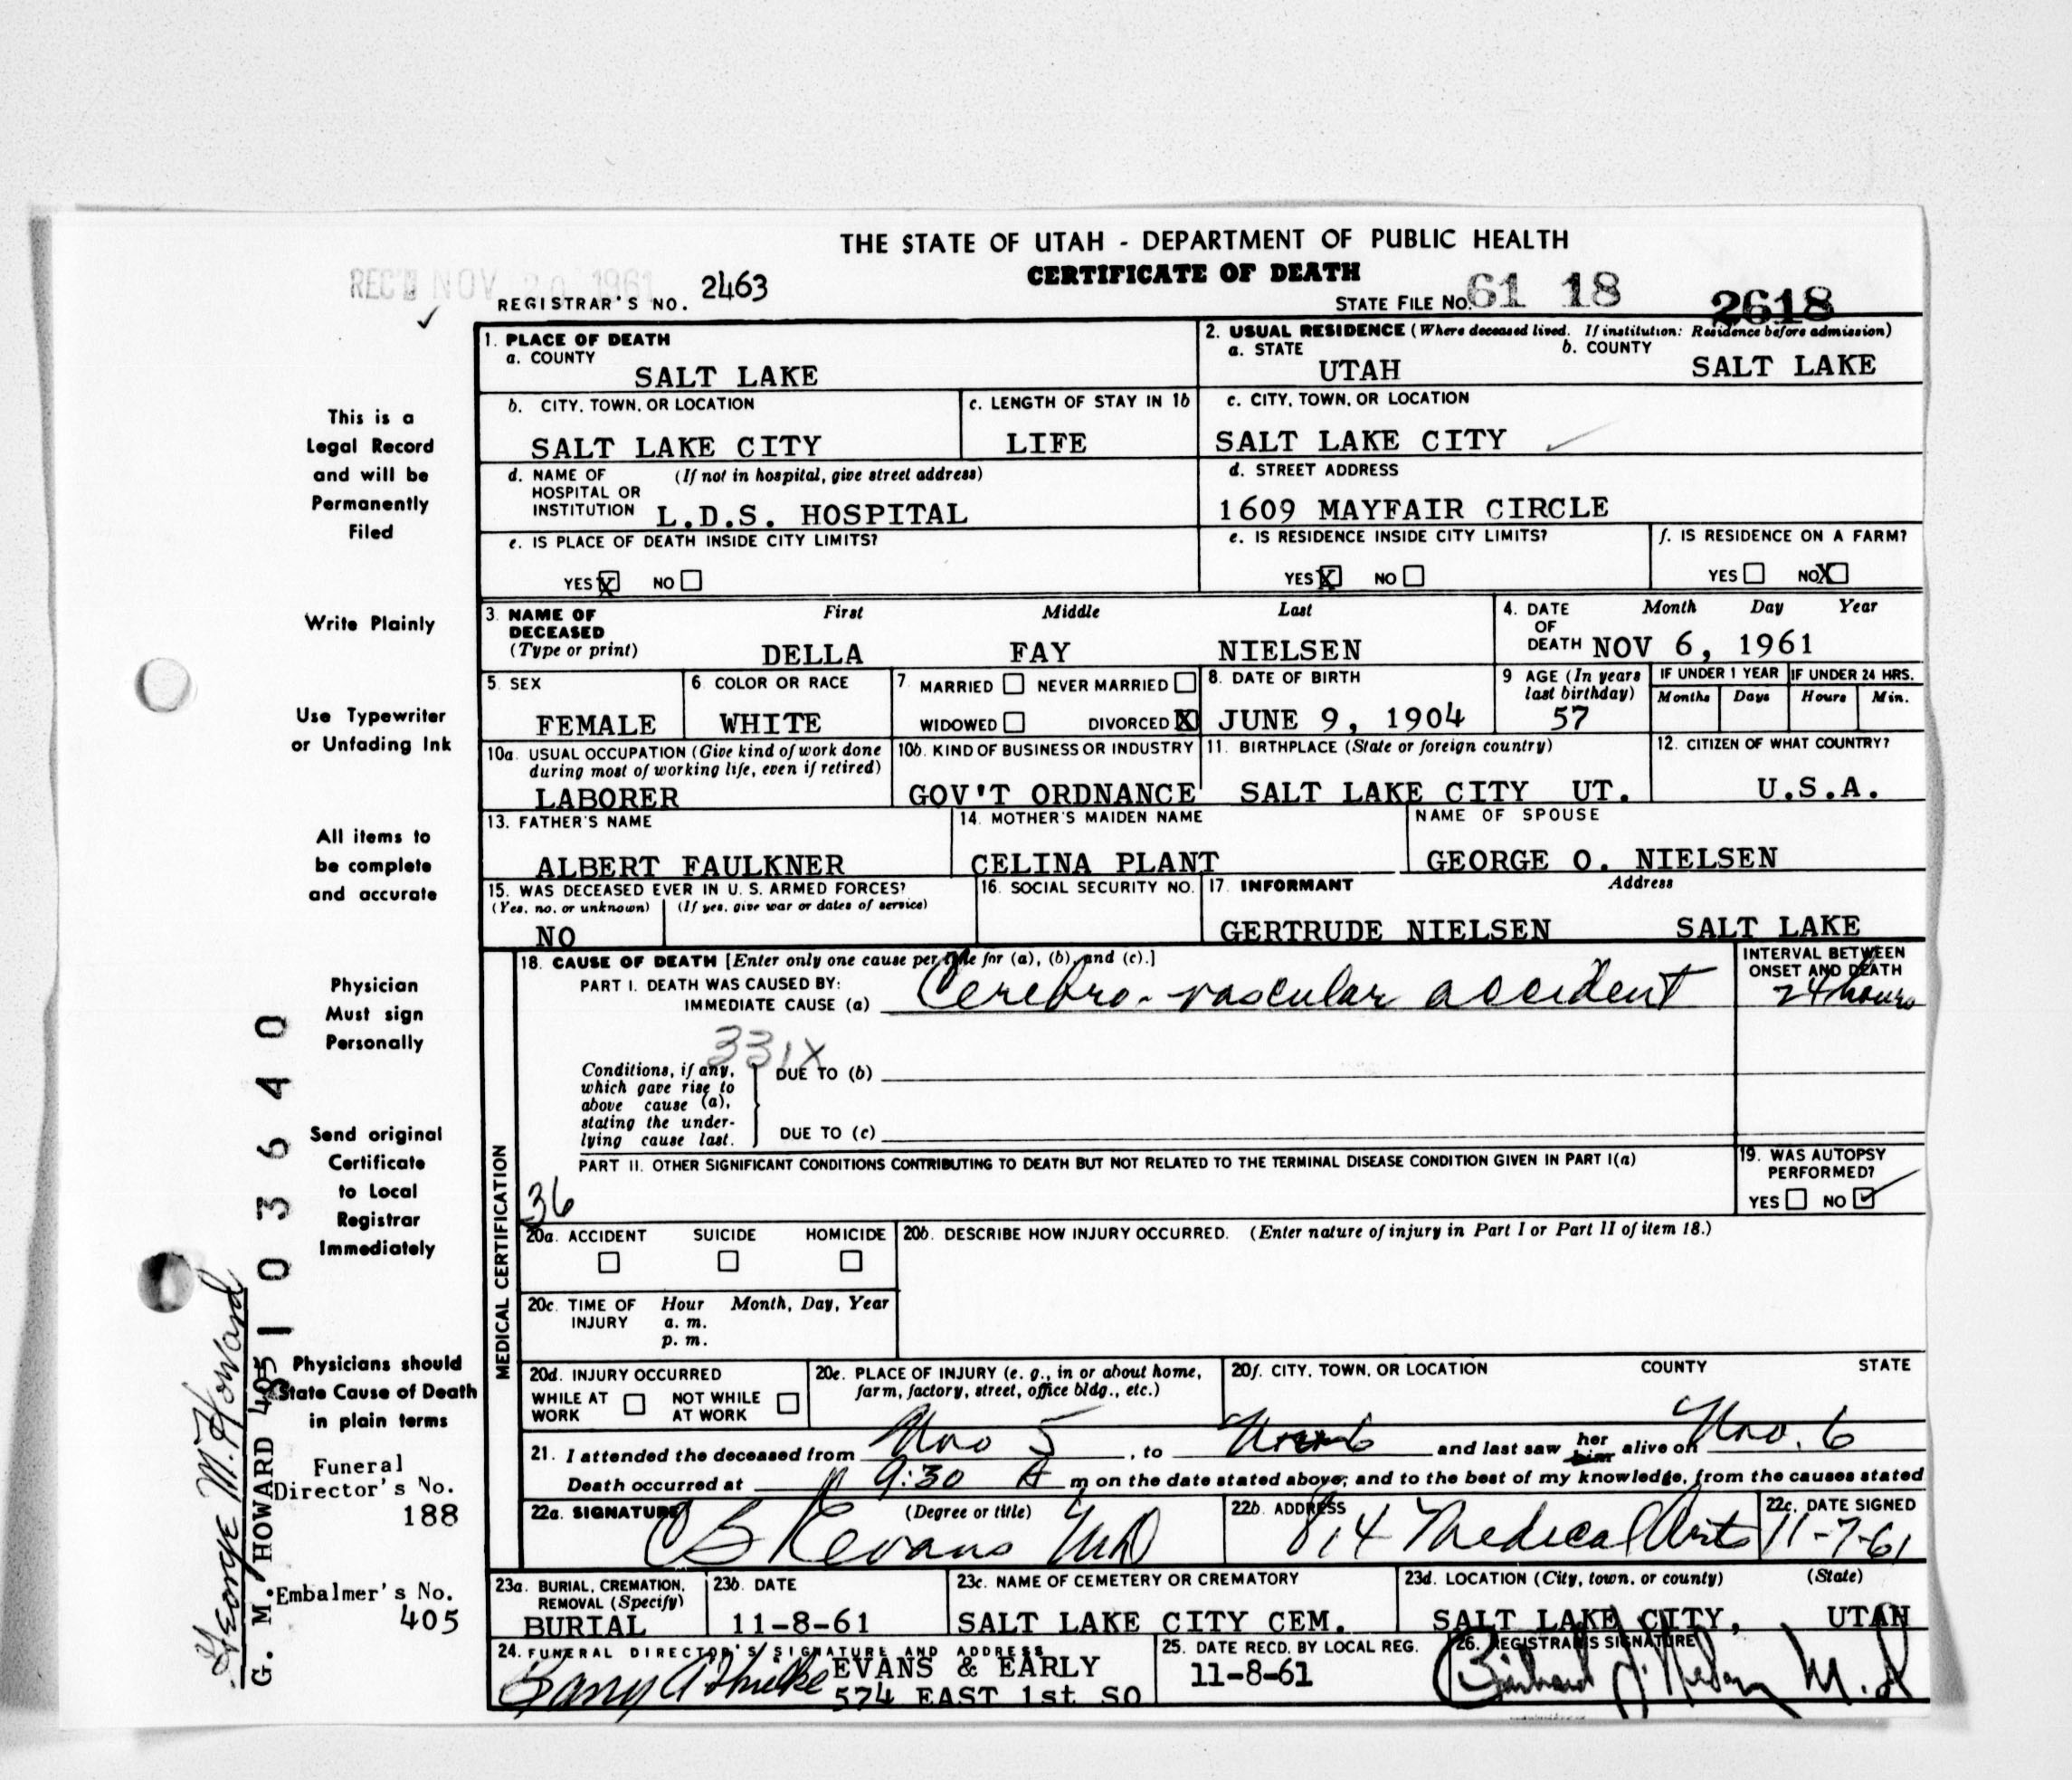 THE STATE OF UTAH - DEPARTMENT OF PUBLIC HEALTH
CERTIFICATE OF DEATH
REC'D NOV 20 1961
REGISTRAR'S NO. 2463
STATE FILE NO. 61 18 2618
1. PLACE OF DEATH
a. COUNTY
SALT LAKE
2. USUAL RESIDENCE (Where deceased lived. If institution: Residence before admission)
a. STATE b. COUNTY
UTAH SALT LAKE
b. CITY, TOWN, OR LOCATION
SALT LAKE CITY
c. LENGTH OF STAY IN 1b
LIFE
c. CITY, TOWN, OR LOCATION
SALT LAKE CITY
d. NAME OF (If not in hospital, give street address)
HOSPITAL OR
INSTITUTION L.D.S. HOSPITAL
d. STREET ADDRESS
1609 MAYFAIR CIRCLE
e. IS PLACE OF DEATH INSIDE CITY LIMITS?
YES X NO
e. IS RESIDENCE INSIDE CITY LIMITS?
YES X NO
f. IS RESIDENCE ON A FARM?
YES NO X
3. NAME OF First Middle Last
DECEASED
(Type or print) DELLA FAY NIELSEN
4. DATE Month Day Year
OF
DEATH NOV 6, 1961
5. SEX
FEMALE
6. COLOR OR RACE
WHITE
7 MARRIED NEVER MARRIED
WIDOWED DIVORCED X
8. DATE OF BIRTH
JUNE 9, 1904
9 AGE (In years
last birthday)
57
IF UNDER 1 YEAR IF UNDER 24 HRS.
Months Days Hours Min.
10a. USUAL OCCUPATION (Give kind of work done
during most of working life, even if retired)
LABORER
10b. KIND OF BUSINESS OR INDUSTRY
GOV'T ORDNANCE
11. BIRTHPLACE (State or foreign country)
SALT LAKE CITY UT.
12. CITIZEN OF WHAT COUNTRY?
U.S.A.
13. FATHER'S NAME
ALBERT FAULKNER
14. MOTHER'S MAIDEN NAME
CELINA PLANT
NAME OF SPOUSE
GEORGE O. NIELSEN
15. WAS DECEASED EVER IN U. S. ARMED FORCES?
(Yes, no, or unknown) (If yes, give war or dates of service)
NO
16. SOCIAL SECURITY NO.
17. INFORMANT Address
GERTRUDE NIELSEN SALT LAKE
MEDICAL CERTIFICATION
18. CAUSE OF DEATH [Enter only one cause per line for (a), (b), and (c).]
PART I. DEATH WAS CAUSED BY:
IMMEDIATE CAUSE (a) Cerebro-vascular accident
INTERVAL BETWEEN
ONSET AND DEATH
24 hours
331X
Conditions, if any,
which gave rise to
above cause (a),
stating the under-
lying cause last.
DUE TO (b)
DUE TO (c)
PART II. OTHER SIGNIFICANT CONDITIONS CONTRIBUTING TO DEATH BUT NOT RELATED TO THE TERMINAL DISEASE CONDITION GIVEN IN PART I(a)
36
19. WAS AUTOPSY
PERFORMED?
YES NO ✓
20a. ACCIDENT SUICIDE HOMICIDE
20b. DESCRIBE HOW INJURY OCCURRED. (Enter nature of injury in Part I or Part II of item 18.)
20c. TIME OF Hour Month, Day, Year
INJURY a. m.
p. m.
20d. INJURY OCCURRED
WHILE AT WORK NOT WHILE AT WORK
20e. PLACE OF INJURY (e. g., in or about home,
farm, factory, street, office bldg., etc.)
20f. CITY, TOWN, OR LOCATION COUNTY STATE
21. I attended the deceased from Nov 5, to Nov 6 and last saw her him alive on Nov. 6
Death occurred at 9:30 A m on the date stated above; and to the best of my knowledge, from the causes stated
22a. SIGNATURE (Degree or title)
Evans MD
22b. ADDRESS
814 Medical Arts
22c. DATE SIGNED
11-7-61
23a. BURIAL, CREMATION,
REMOVAL (Specify)
BURIAL
23b. DATE
11-8-61
23c. NAME OF CEMETERY OR CREMATORY
SALT LAKE CITY CEM.
23d. LOCATION (City, town, or county) (State)
SALT LAKE CITY, UTAH
24. FUNERAL DIRECTOR'S SIGNATURE AND ADDRESS
EVANS & EARLY
574 EAST 1st SO
25. DATE RECD. BY LOCAL REG.
11-8-61
26. REGISTRAR'S SIGNATURE
M.D
This is a
Legal Record
and will be
Permanently
Filed
Write Plainly
Use Typewriter
or Unfading Ink
All items to
be complete
and accurate
Physician
Must sign
Personally
Send original
Certificate
to Local
Registrar
Immediately
Physicians should
State Cause of Death
in plain terms
Funeral
Director's No.
188
Embalmer's No.
405
George M. Howard
G. M. HOWARD 405
1 0 3 6 4 0